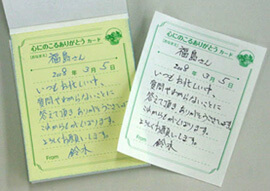 心にのこるありがとうカード
福島さん
2008年3月5日
いつもお忙しい中、
質問やわからないことに
答えて頂きありがとうございます。
これからもがんばります。
よろしくお願いします。
From
鈴木
心にのこるありがとうカード
福島さん
2008年3月5日
いつもお忙しい中、
質問やわからないことに
答えて頂きありがとうございます。
これからもがんばります。
よろしくお願いします。
From
鈴木